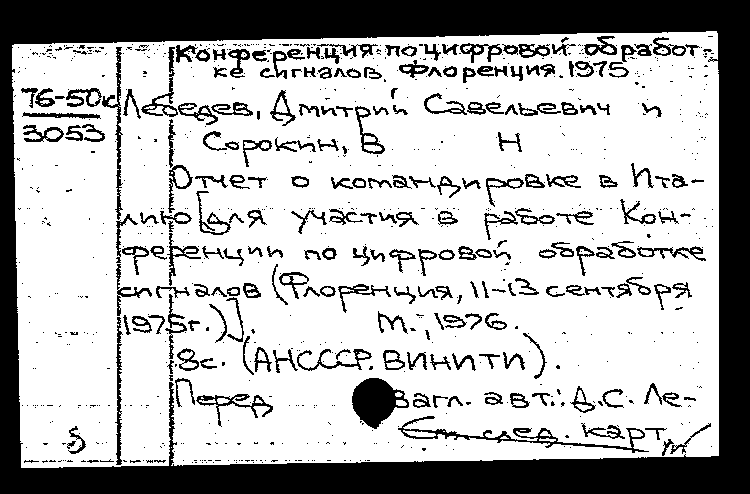 Конференция по цифровой обработ-
ке сигналов. Флоренция. 1975
76-50к
3053
Лебедев, Дмитрий Савельевич и
Сорокин, В Н
Отчет о командировке в Ита-
лию [для участия в работе Кон-
ференции по цифровой обработке
сигналов (Флоренция, 11-13 сентября
1975г.)]. М., 1976.
8с. (АН СССР. ВИНИТИ).
Перед загл. авт.: Д.С. Ле-
См. след. карт.